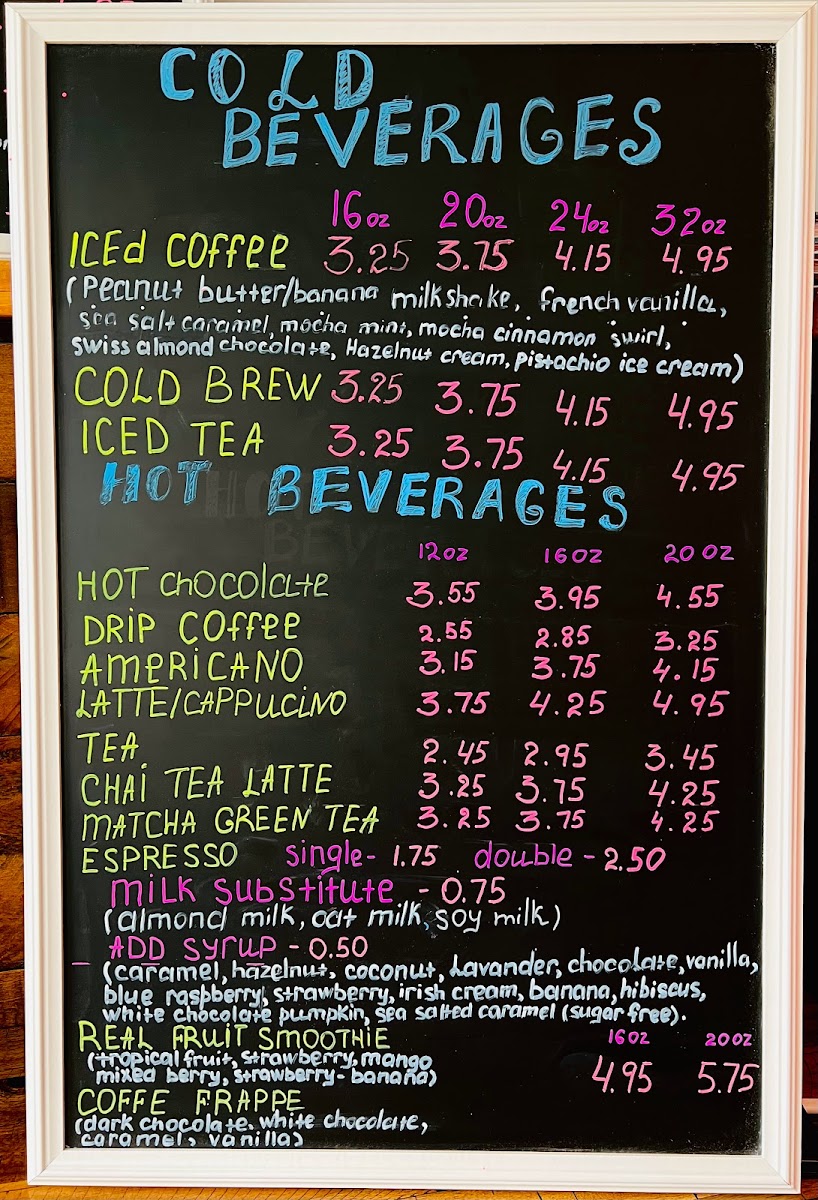 COLD
BEVERAGES
16oz 20oz 24oz 32oz
ICEd COFFEE 3.25 3.75 4.15 4.95
(Peanut butter/banana milkshake, french vanilla,
sea salt caramel, mocha mint, mocha cinnamon swirl,
Swiss almond chocolate, Hazelnut cream, pistachio ice cream)
COLD BREW 3.25 3.75 4.15 4.95
ICED TEA 3.25 3.75 4.15 4.95
HOT BEVERAGES
12oz 16oz 20oz
HOT chocolate 3.55 3.95 4.55
DRIP COFFEE 2.55 2.85 3.25
AMERICANO 3.15 3.75 4.15
LATTE/CAPPUCINO 3.75 4.25 4.95
TEA 2.45 2.95 3.45
CHAI TEA LATTE 3.25 3.75 4.25
MATCHA GREEN TEA 3.25 3.75 4.25
ESPRESSO single- 1.75 double - 2.50
milk substitute - 0.75
(almond milk, oat milk, soy milk)
- ADD syrup - 0.50
(caramel, hazelnut, coconut, Lavander, chocolate, vanilla,
blue raspberry, strawberry, irish cream, banana, hibiscus,
white chocolate pumpkin, sea salted caramel (sugar free).
REAL FRUIT SMOOTHIE 16oz 20oz
(tropical fruit, strawberry, mango
mixed berry, strawberry-banana) 4.95 5.75
COFFE FRAPPE
(dark chocolate, white chocolate,
caramel, vanilla)